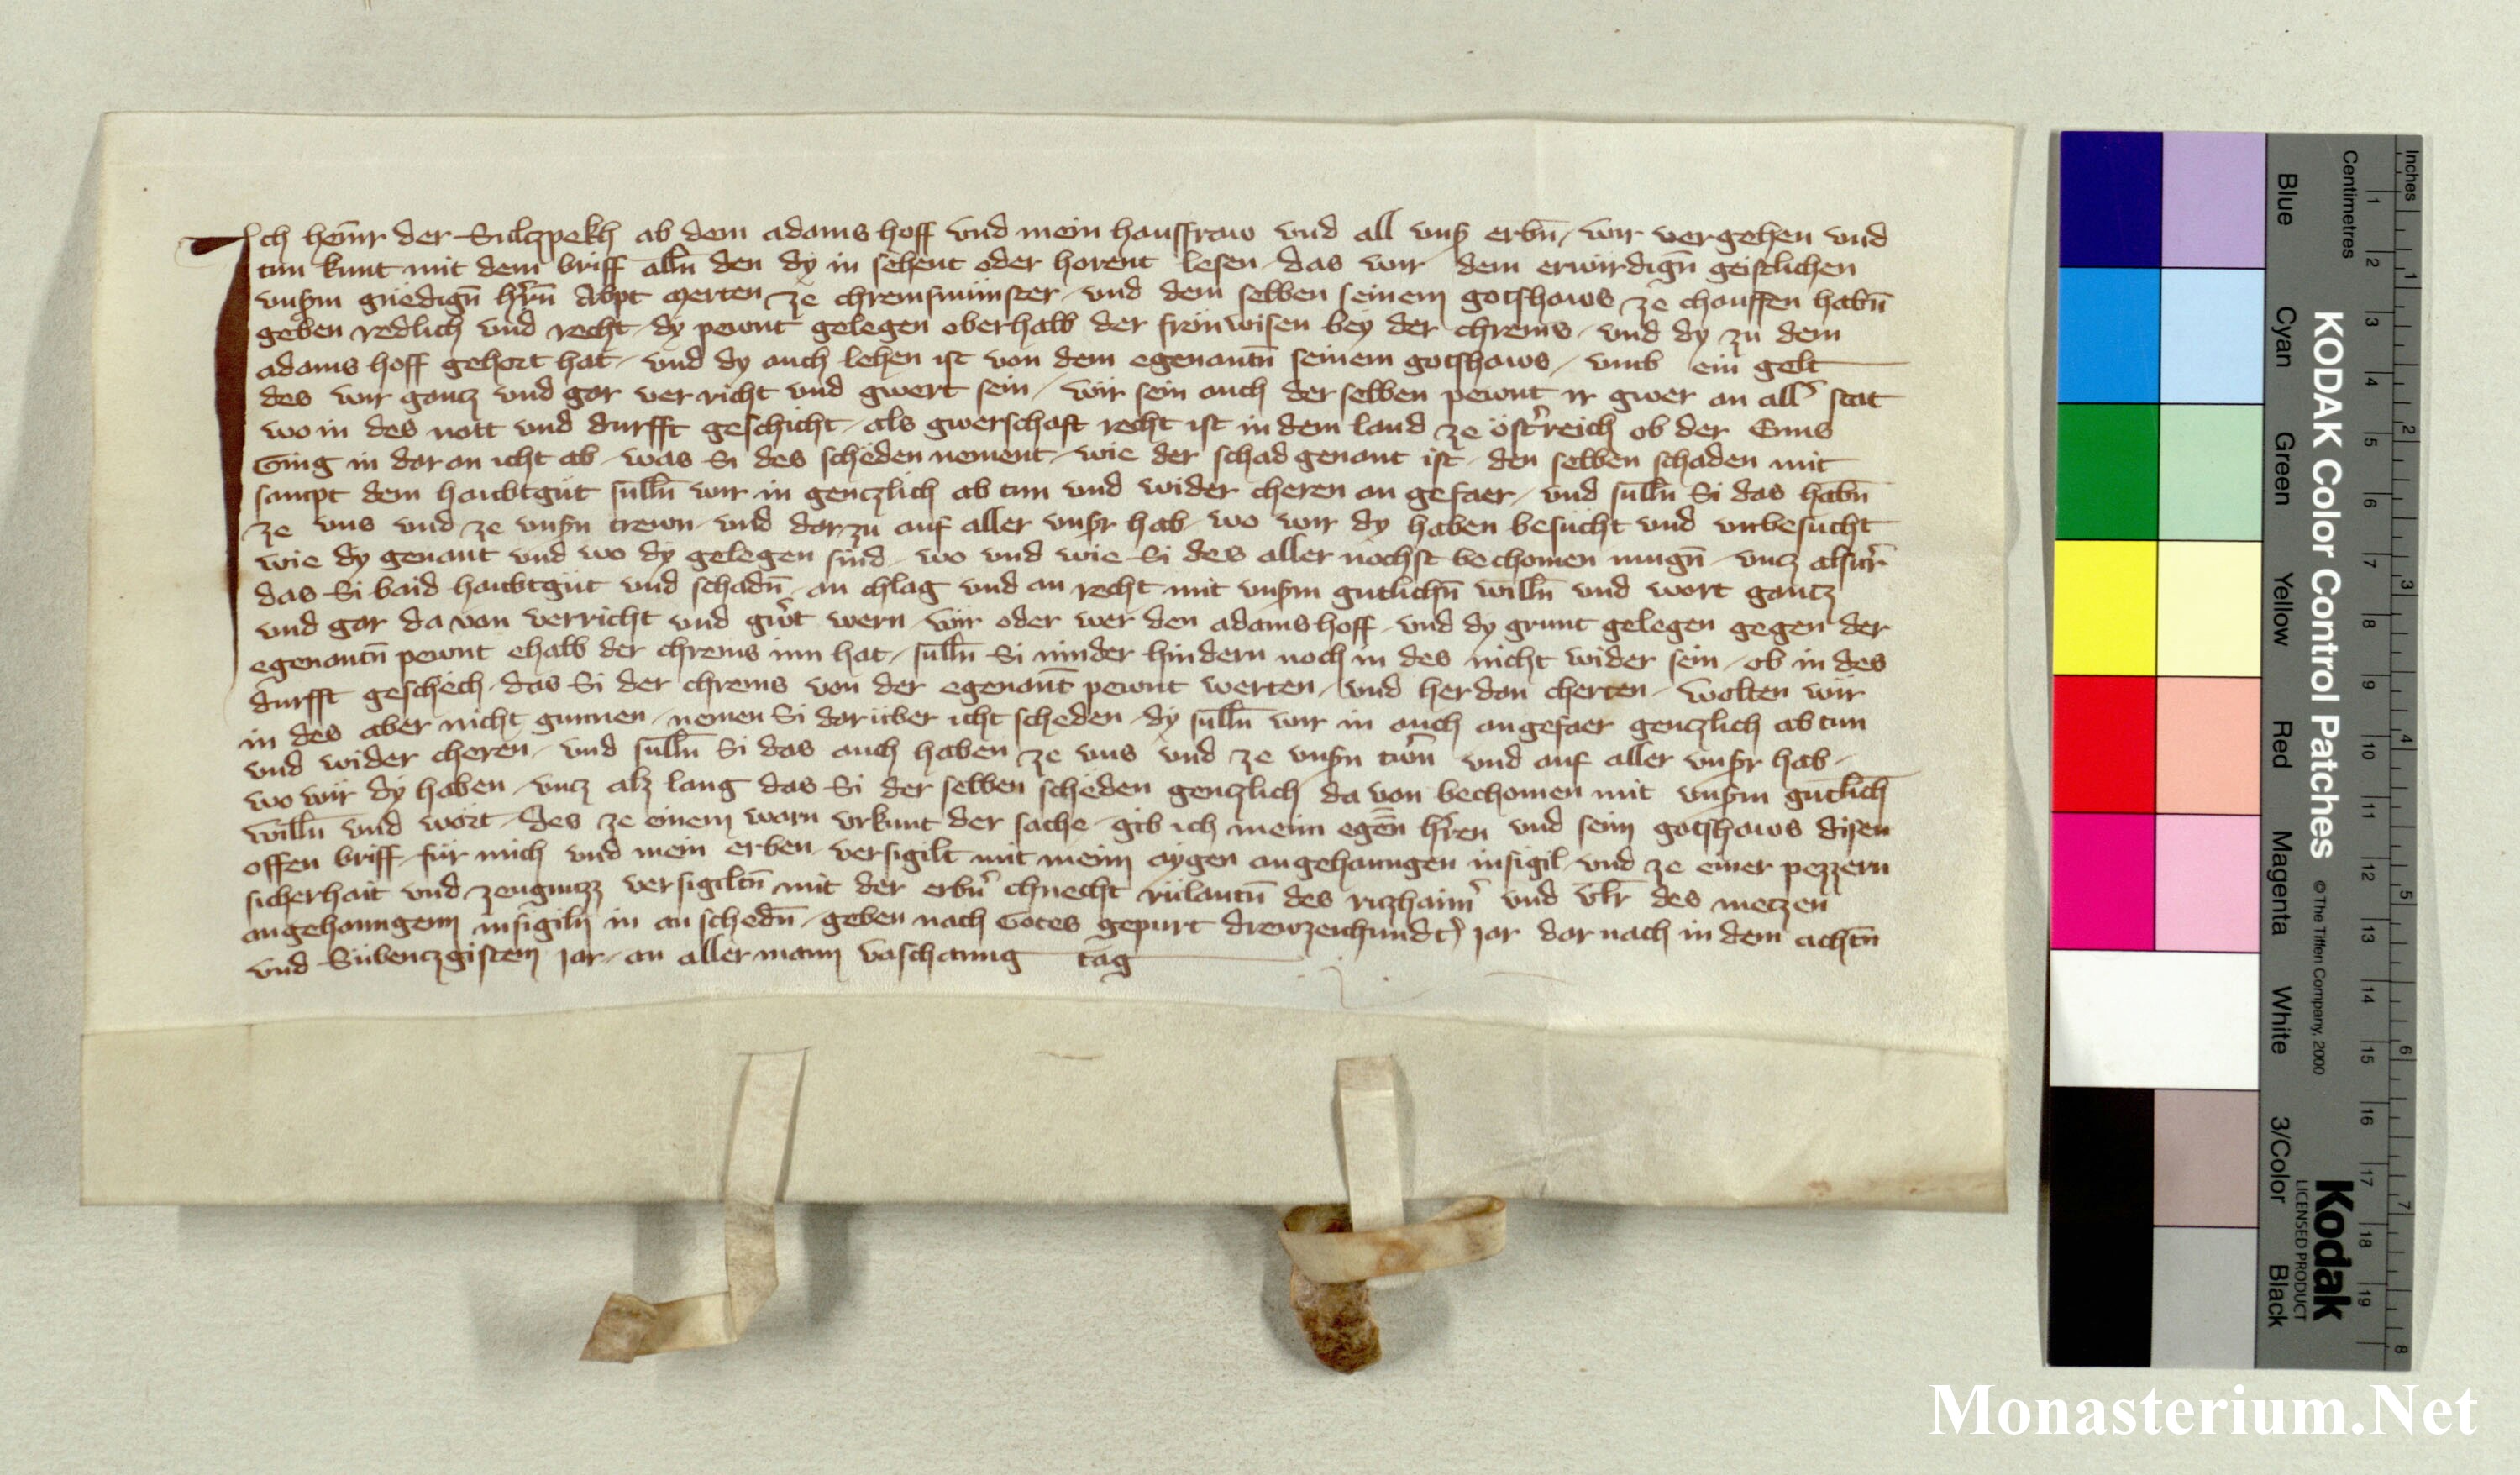 Ich heinr der Sulczpekh ab dem adams hoff vnd mein hausfraw vnd all vnsʒ erbn̄ / wir vergehen vnd
tun kunt mit dem briff alln̄ den dy in sehent oder horent lesen / das wir dem erwirdign̄ geistlichen
vnsʒm gnedign̄ hr̄n Abpt Merten ze chremsmünster / vnd dem selben seinem gotshaws ze chauffen habn̄
geben redlich vnd recht / dy pewnt gelegen oberhalb der fronwisen bey der chrems / vnd dy zu dem
adams hoff gehort hat / vnd dy auch lehen ist von dem egenantn̄ seinem gotshaws / vmb ein gelt
des wir gantz vnd gar ver richt vnd gwert sein / wir sein auch der selben pewnt ir gwer an all' stat
wo in des nott vnd durfft geschicht / als gwerschaft recht ist in dem land ze öst'reich ob der Enns
Ging in dar an icht ab / was Si des scheden nement / wie der schad genant ist / den selben schaden mit
sampt dem haubtgut sulln̄ wir in genczlich ab tun vnd wider cheren an gefaer / vnd sulln̄ Si das habn̄
ze vns vnd ze vnsʒn trewn / vnd dar zu auf aller vnsʒr hab / wo wir dy haben besucht vnd vnbesucht
wie dy genant vnd wo dy gelegen sind / wo vnd wie Si des aller nachst bechomen mugn̄ / vncz alsuer
das Si baid haubtgut vnd schadn̄ / an chlag vnd an recht mit vnsʒm gutlichn̄ willn̄ vnd wort gantz
vnd gar da von verricht vnd gw't wern / wir oder wer den adams hoff / vnd dy grunt gelegen gegen der
egenantn̄ pewnt ehalb der chrems inn hat / sulln̄ Si ninder hindern noch in des nicht wider sein / ob in des
durfft geschech / das Si der chrems von der egenant̄ pewnt werten / vnd her dan cherten / wolten wir
in des aber nicht gunnen / nemen Si dar über icht scheden / dy sulln̄ wir in auch an gefaer genczlich ab tun
vnd wider cheren / vnd sulln̄ Si das auch haben ze vns vnd ze vnsʒn twn̄ vnd auf aller vnsʒr hab /
wo wir dy haben / vncz alz lang das Si der selben scheden genczlich da von bechomen mit vnsʒm gutlich̄
willn̄ vnd wort / des ze einem warn vrkunt der sache / gib ich meim egen̄ h'ren vnd seim gotshaws disen
offen briff / für mich vnd mein erben versigilt mit meim aygen angehanngen insigil / vnd ze einer pezzern
sicherhait vnd zeugnuzz versigiltn̄ mit der erbn' chnecht rülantn̄ des ritzhaim' vnd vlr̄ des metzen
angehanngenn insigiln in an schedn̄ / geben nach Gotes gepurt drewzenhundt' jar dar nach in dem achtn̄
vnd Sübenczgistem jar / an aller mann vaschanng tag
Monasterium.Net
KODAK Color Control Patches © The Tiffen Company, 2000 Kodak LICENSED PRODUCT
Blue Cyan Green Yellow Red Magenta White 3/Color Black
Centimetres 1 2 3 4 5 6 7 8 9 10 11 12 13 14 15 16 17 18 19
Inches 1 2 3 4 5 6 7 8